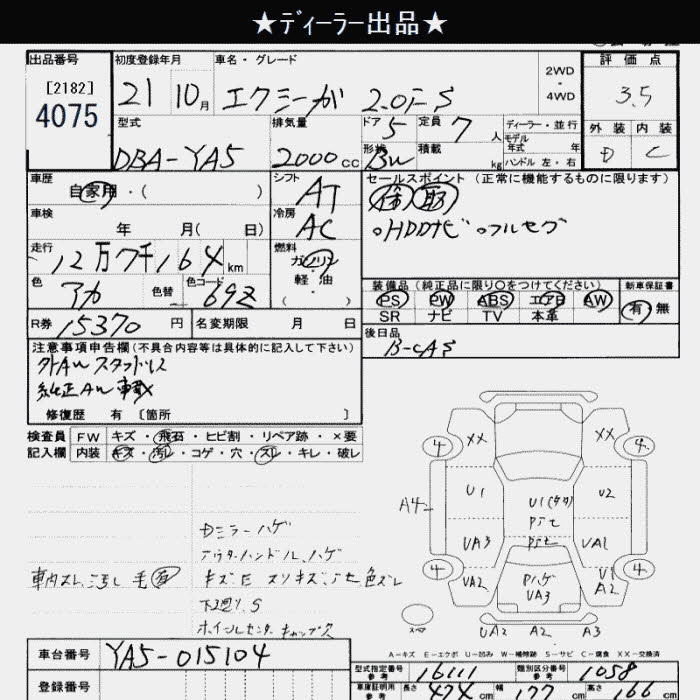 ★ディーラー出品★
出品番号 初度登録年月 車名・グレード 2WD・4WD 評価点
[2182]
4075
21 10月 エクシーガ 2.0i-S 3.5
型式 排気量 ドア 5 定員 7人 ディーラー・並行 外装 内装
モデル年式 年
DBA-YA5 2000cc 形状 積載 kg ハンドル 左・右 D C
車歴 シフト セールスポイント(正常に機能するものに限ります)
自家用・( ) AT
車検 冷房 ○HDDナビ ○フルセグ
年 月( 日) AC
走行 燃料
12万7千164km ガソリン
軽油
( )
色 アカ 色替 色コード 69Z
装備品(純正品に限り○をつけてください) 新車保証書
PS PW ABS エアB AW 有 無
SR ナビ TV 本革
R券 15370円 名変期限 月 日
後日品
B-CAS
注意事項申告欄(不具合内容等は具体的に記入して下さい)
外AWスタッドレス
純正AW車載
修復歴 有〔箇所 〕
検査員 FW キズ・飛石・ヒビ割・リペア跡・×要
記入欄 内装 キズ・汚レ・コゲ・穴・スレ・キレ・破レ
4 XX XX 4
A4 U1 U2
UA3 UA1
4 UA2 U1 A2 4
UA3
スペア UA2 A2 A3
Dミラーハゲ
アウターハンドルハゲ
下廻りS
ホイールセンターキャップ欠
A-キズ E-エクボ U-凹み W-補修跡 S-サビ C-腐食 XX-交換済
車台番号 YA5-015104
型式指定番号 参考 16111 類別区分番号 参考 1058
登録番号
車庫証明用 参考 長さ 474cm 幅 177cm 高さ 166cm